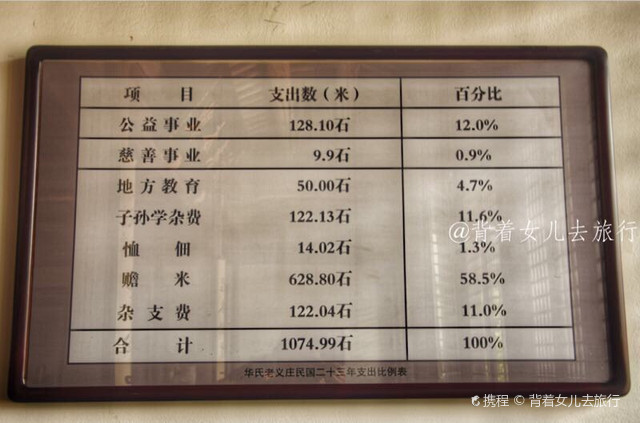 项 目 支出数（米） 百分比
公益事业 128.10石 12.0%
慈善事业 9.9石 0.9%
地方教育 50.00石 4.7%
子孙学杂费 122.13石 11.6%
恤佃 14.02石 1.3%
赡米 628.80石 58.5%
杂支费 122.04石 11.0%
合计 1074.99石 100%
华氏老义庄民国二十三年支出比例表
@背着女儿去旅行
携程 © 背着女儿去旅行